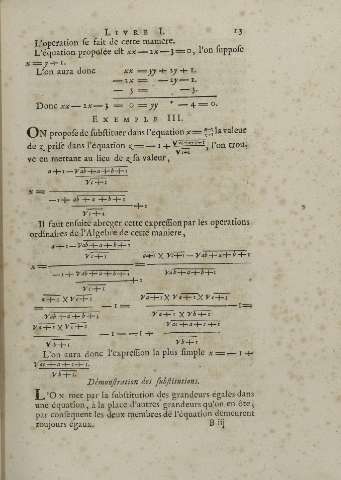 LIVRE I. 13
L'operation se fait de cette maniere.
L'équation proposée est xx — 2x — 3 = 0, l'on suppose
x = y + 1.
L'on aura donc xx = yy + 2y + 1.
— 2x = — 2y — 2.
— 3 = — 3.
Donc xx — 2x — 3 = 0 = yy * — 4 = 0.
EXEMPLE III.
ON propose de substituer dans l'équation x = la valeur
de z, prise dans l'équation z = — 1 + , l'on trou-
ve en mettant au lieu de z sa valeur,
a + 1 — √ab + a + b + 1
√c + 1
x =
— 1 + √ab + a + b + 1
+ 1
√c + 1
Il faut ensuite abreger cette expression par les operations
ordinaires de l'Algebre de cette maniere,
a + 1 — √ab + a + b + 1
√c + 1 a + 1 × √c + 1 — √ab + a + b + 1
x = =
— 1 + √ab + a + b + 1 √ab + a + b + 1
+ 1
√c + 1
a + 1 × √c + 1 √a + 1 × √a + 1 × √c + 1
— 1 = — 1 =
√ab + a + b + 1 √a + 1 × √b + 1
√a + 1 × √c + 1 √ac + a + c + 1
— 1 = — 1 +
√b + 1 √b + 1
L'on aura donc l'expression la plus simple x = — 1 +
√ac + a + c + 1
√b + 1.
Démonstration des substitutions.
L'ON met par la substitution des grandeurs égales dans
une équation, à la place d'autres grandeurs qu'on en ôte;
par consequent les deux membres de l'équation demeurent
toujours égaux. B iij